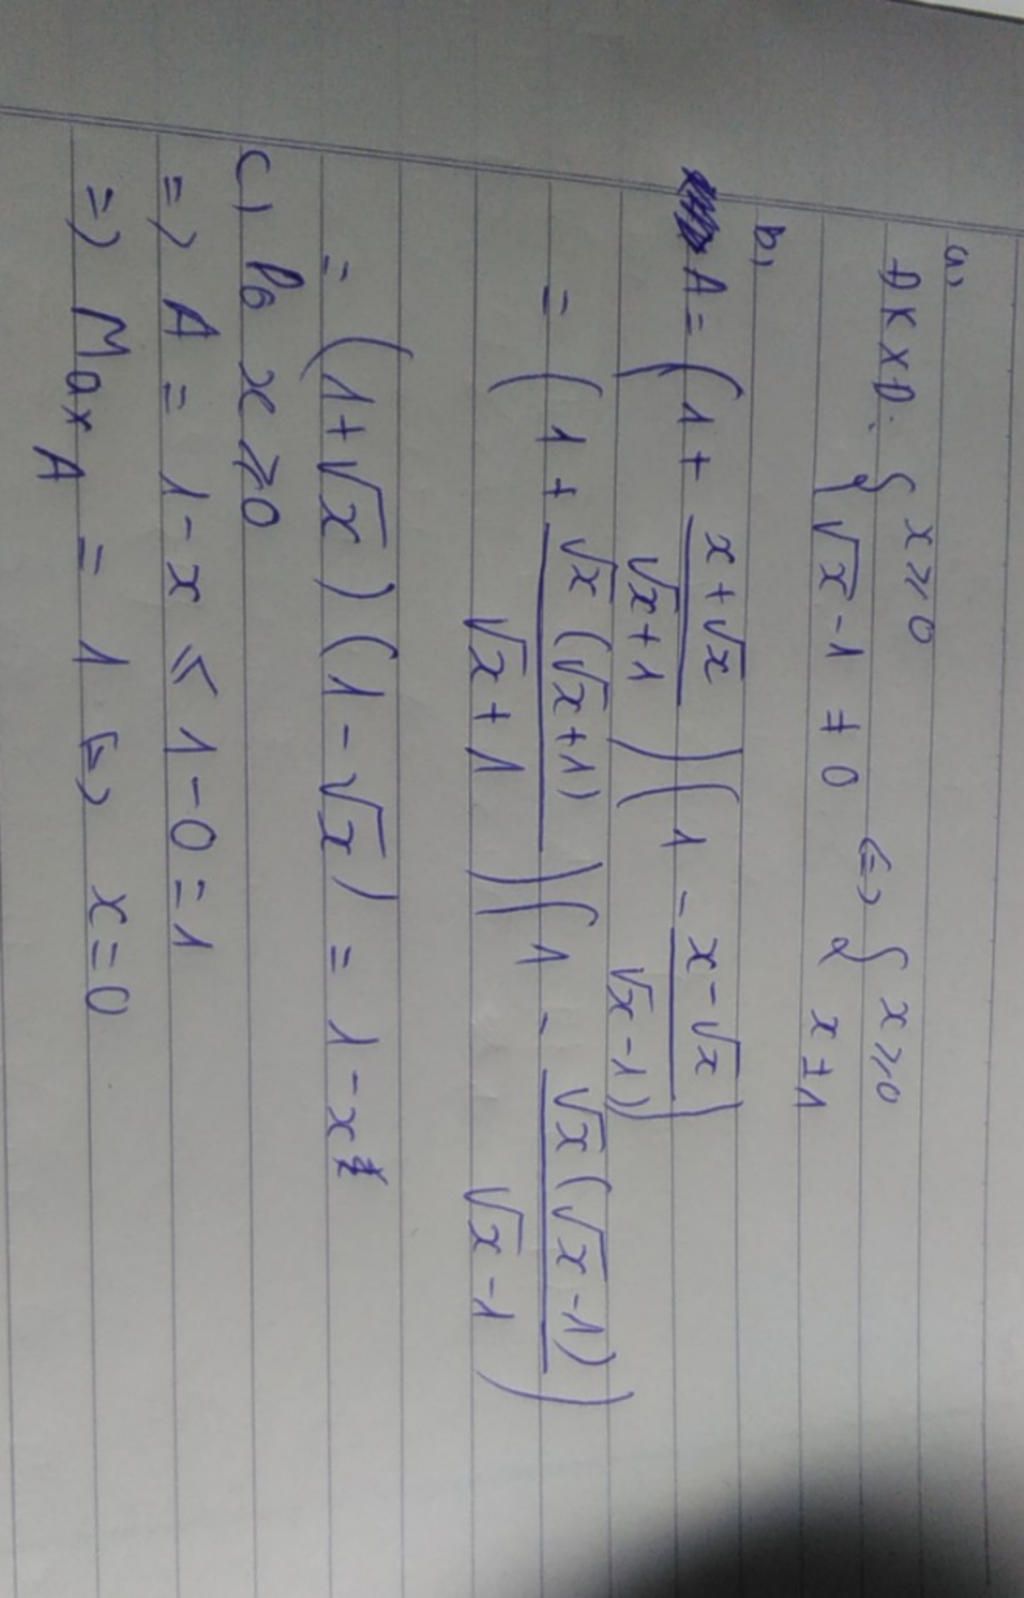 a,
ĐKXĐ: { x ≥ 0 <=> { x ≥ 0
√x - 1 ≠ 0 x ≠ 1
b,
A = (1 + (x + √x)/(√x + 1)) (1 - (x - √x)/(√x - 1))
= (1 + √x(√x + 1)/(√x + 1)) (1 - √x(√x - 1)/(√x - 1))
= (1 + √x)(1 - √x) = 1 - x
c, x ≥ 0
=> A = 1 - x ≤ 1 - 0 = 1
=> Max A = 1 <=> x = 0